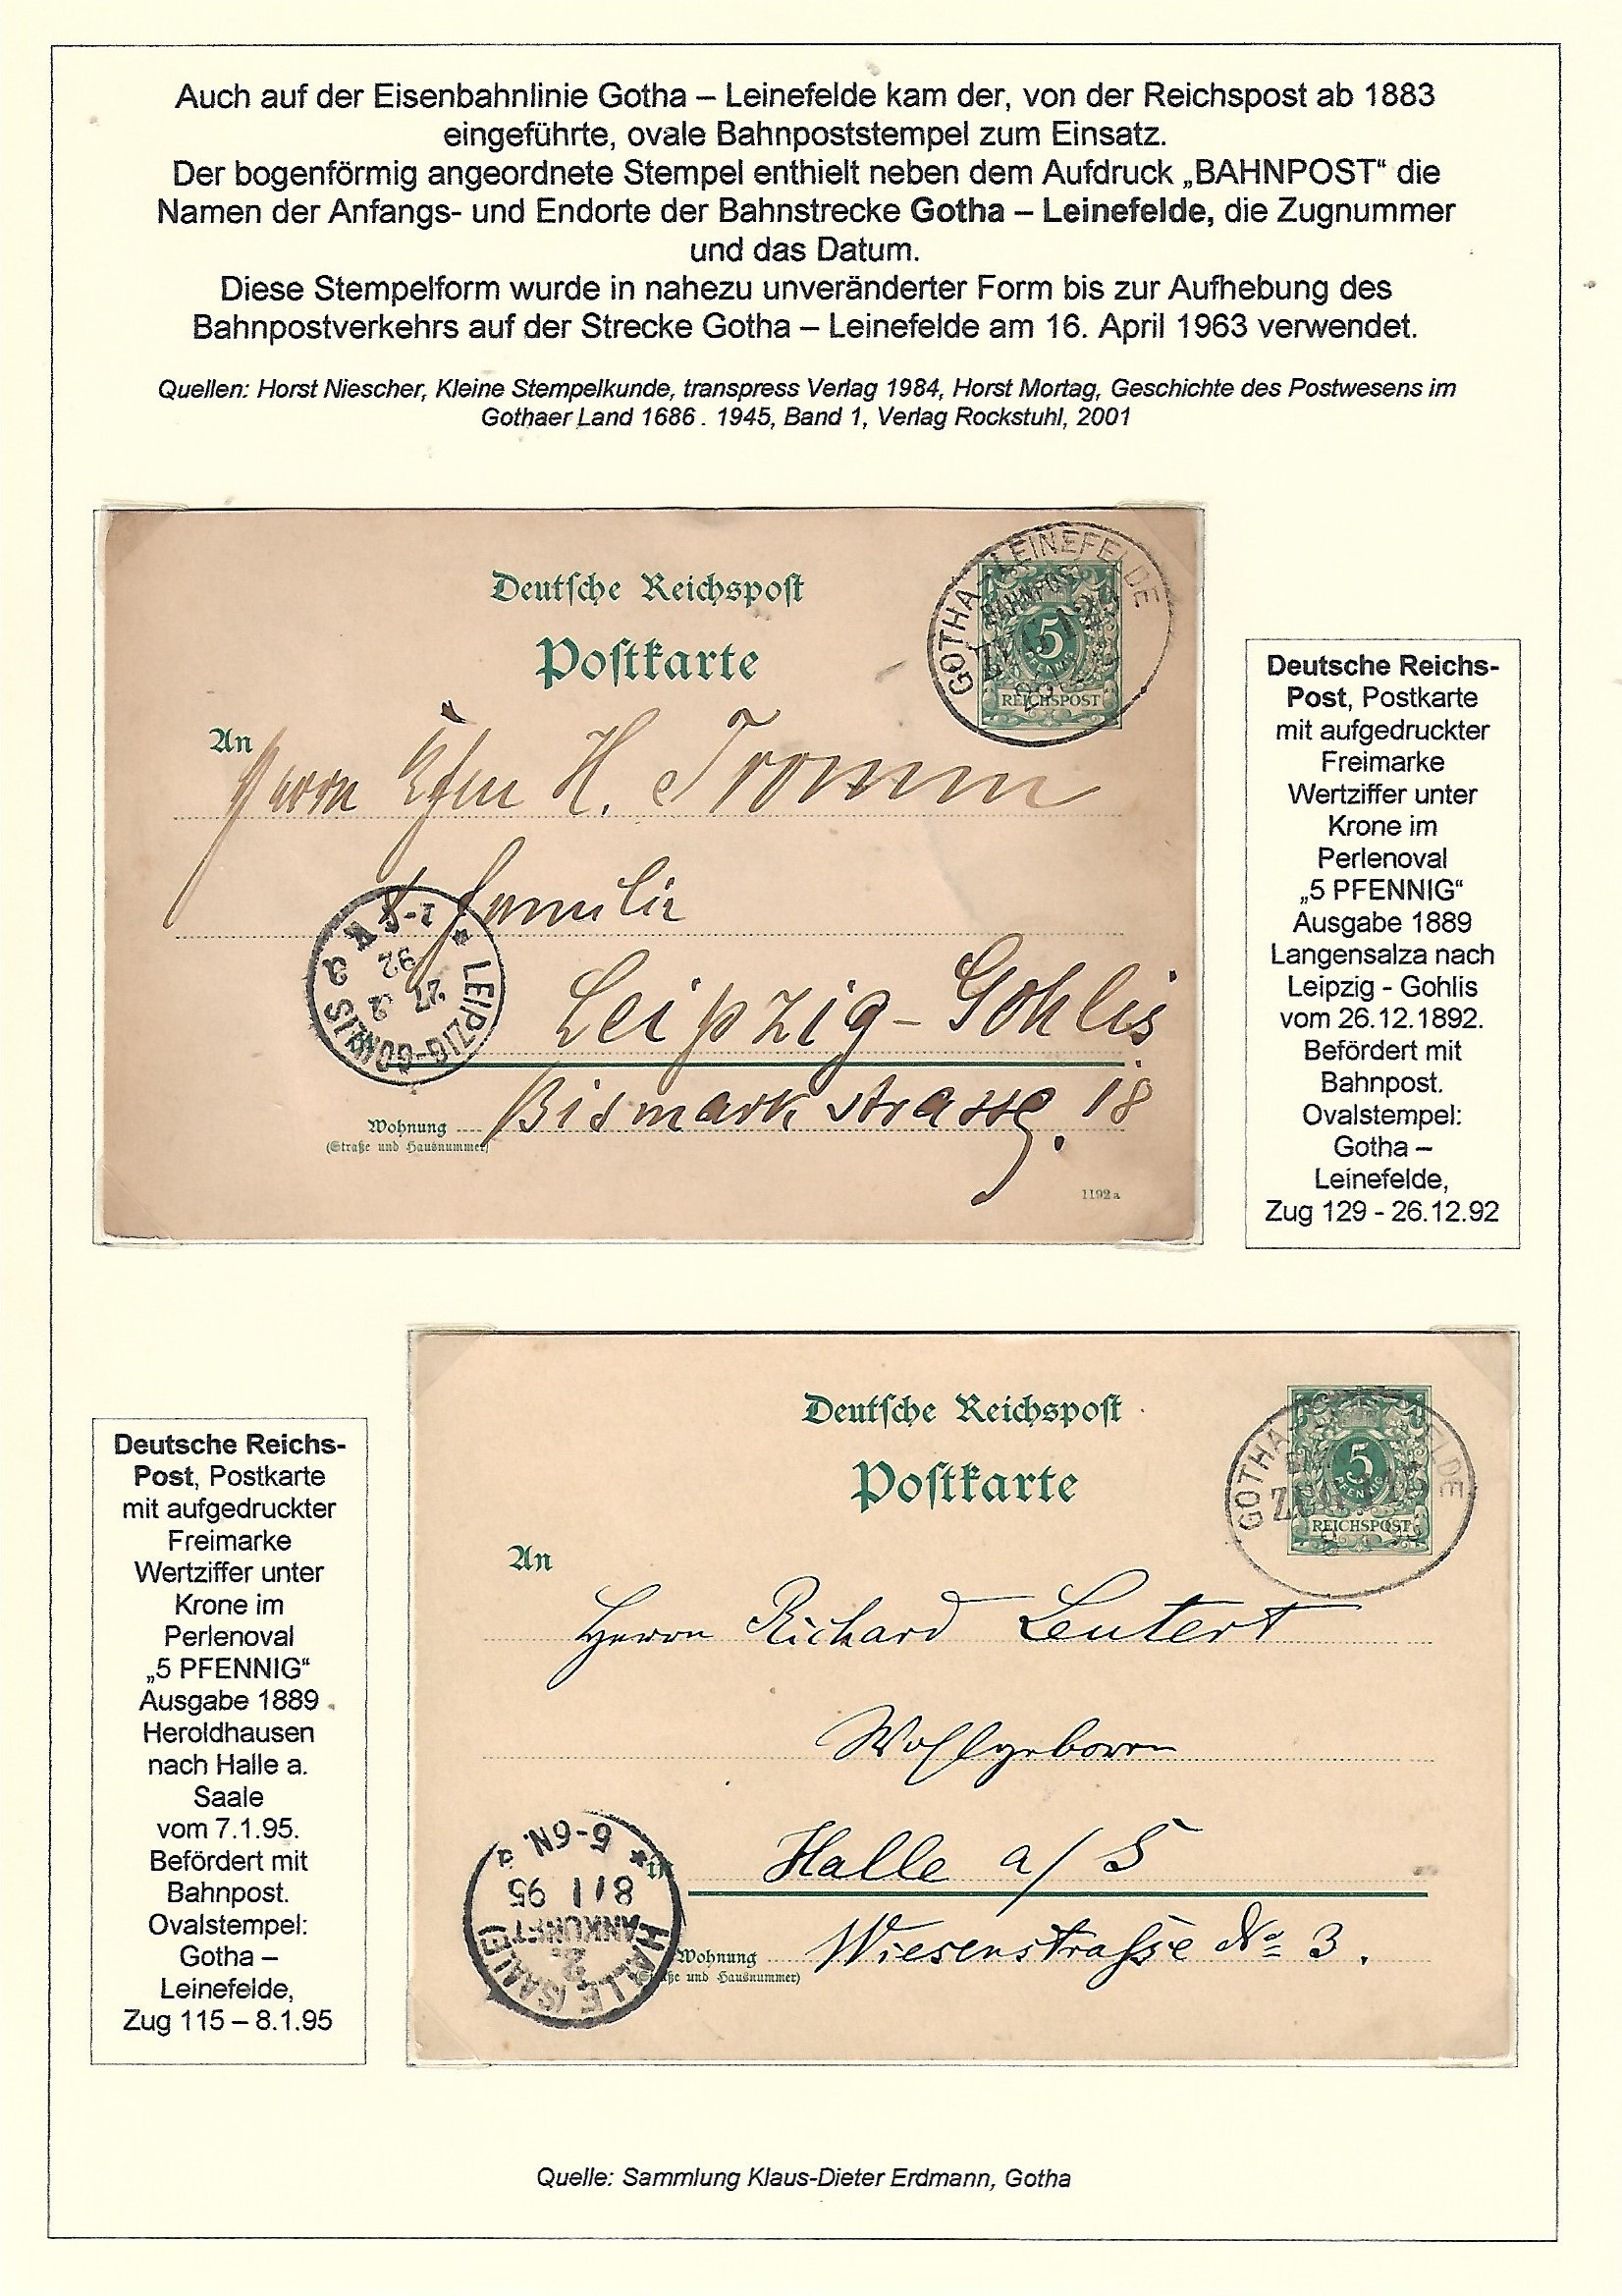 Auch auf der Eisenbahnlinie Gotha – Leinefelde kam der, von der Reichspost ab 1883
eingeführte, ovale Bahnpoststempel zum Einsatz.
Der bogenförmig angeordnete Stempel enthielt neben dem Aufdruck „BAHNPOST“ die
Namen der Anfangs- und Endorte der Bahnstrecke Gotha – Leinefelde, die Zugnummer
und das Datum.
Diese Stempelform wurde in nahezu unveränderter Form bis zur Aufhebung des
Bahnpostverkehrs auf der Strecke Gotha – Leinefelde am 16. April 1963 verwendet.
Quellen: Horst Niescher, Kleine Stempelkunde, transpress Verlag 1984, Horst Mortag, Geschichte des Postwesens im
Gothaer Land 1686 . 1945, Band 1, Verlag Rockstuhl, 2001
Deutsche Reichspost
Postkarte
GOTHA-LEINEFELDE
BAHNPOST
5
PFENNIG
REICHSPOST
An
Herrn H. Tromm
& Familie
LEIPZIG-GOHLIS
27 92
Leipzig-Gohlis
Bismark strasse. 18
Wohnung
(Straße und Hausnummer)
1192a
Deutsche Reichs-
Post, Postkarte
mit aufgedruckter
Freimarke
Wertziffer unter
Krone im
Perlenoval
„5 PFENNIG“
Ausgabe 1889
Langensalza nach
Leipzig - Gohlis
vom 26.12.1892.
Befördert mit
Bahnpost.
Ovalstempel:
Gotha –
Leinefelde,
Zug 129 - 26.12.92
Deutsche Reichs-
Post, Postkarte
mit aufgedruckter
Freimarke
Wertziffer unter
Krone im
Perlenoval
„5 PFENNIG“
Ausgabe 1889
Heroldhausen
nach Halle a.
Saale
vom 7.1.95.
Befördert mit
Bahnpost.
Ovalstempel:
Gotha –
Leinefelde,
Zug 115 – 8.1.95
Deutsche Reichspost
Postkarte
5
PFENNIG
REICHSPOST
An
Herrn Richard Leutert
Wohlgeboren
in
Halle a/S
Wiesenstraße No 3.
Wohnung
(Straße und Hausnummer)
HALLE (SAALE)
ANKUNFT
2.
8 1 95
5-6N.
Quelle: Sammlung Klaus-Dieter Erdmann, Gotha